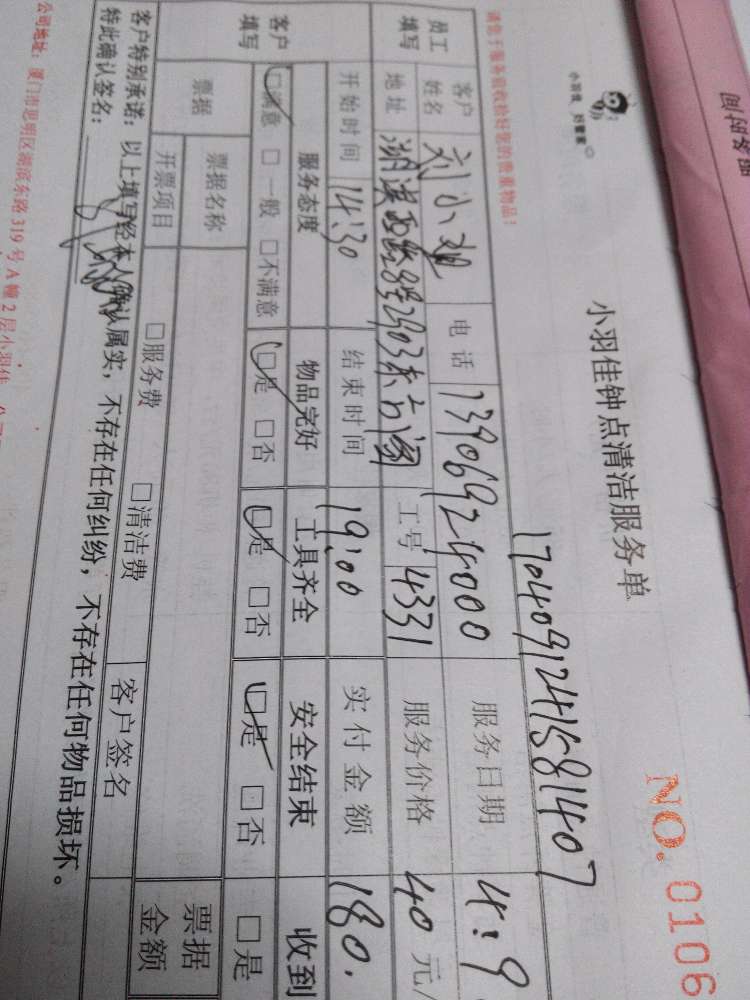 小羽佳 好管家
小羽佳钟点清洁服务单
NO. 0106
1704091241581407
请您于服务前收拾好您的贵重物品!
员工填写
客户姓名 电话 13906924000 服务日期 4.9
地址 工号 4331 服务价格 40 元/
开始时间 14:30 结束时间 19:00 实付金额 180.
客户填写
服务态度 物品完好 工具齐全 安全结束 收到
□满意 □一般 □不满意 □是 □否 □是 □否 □是 □否 □是
票据 票据名称 票据金额
开票项目 □服务费 □清洁费 客户签名
客户特别承诺:以上填写经本人确认属实,不存在任何纠纷,不存在任何物品损坏。
特此确认签名:
公司地址:厦门市思明区湖滨东路319号A幢2层小羽佳